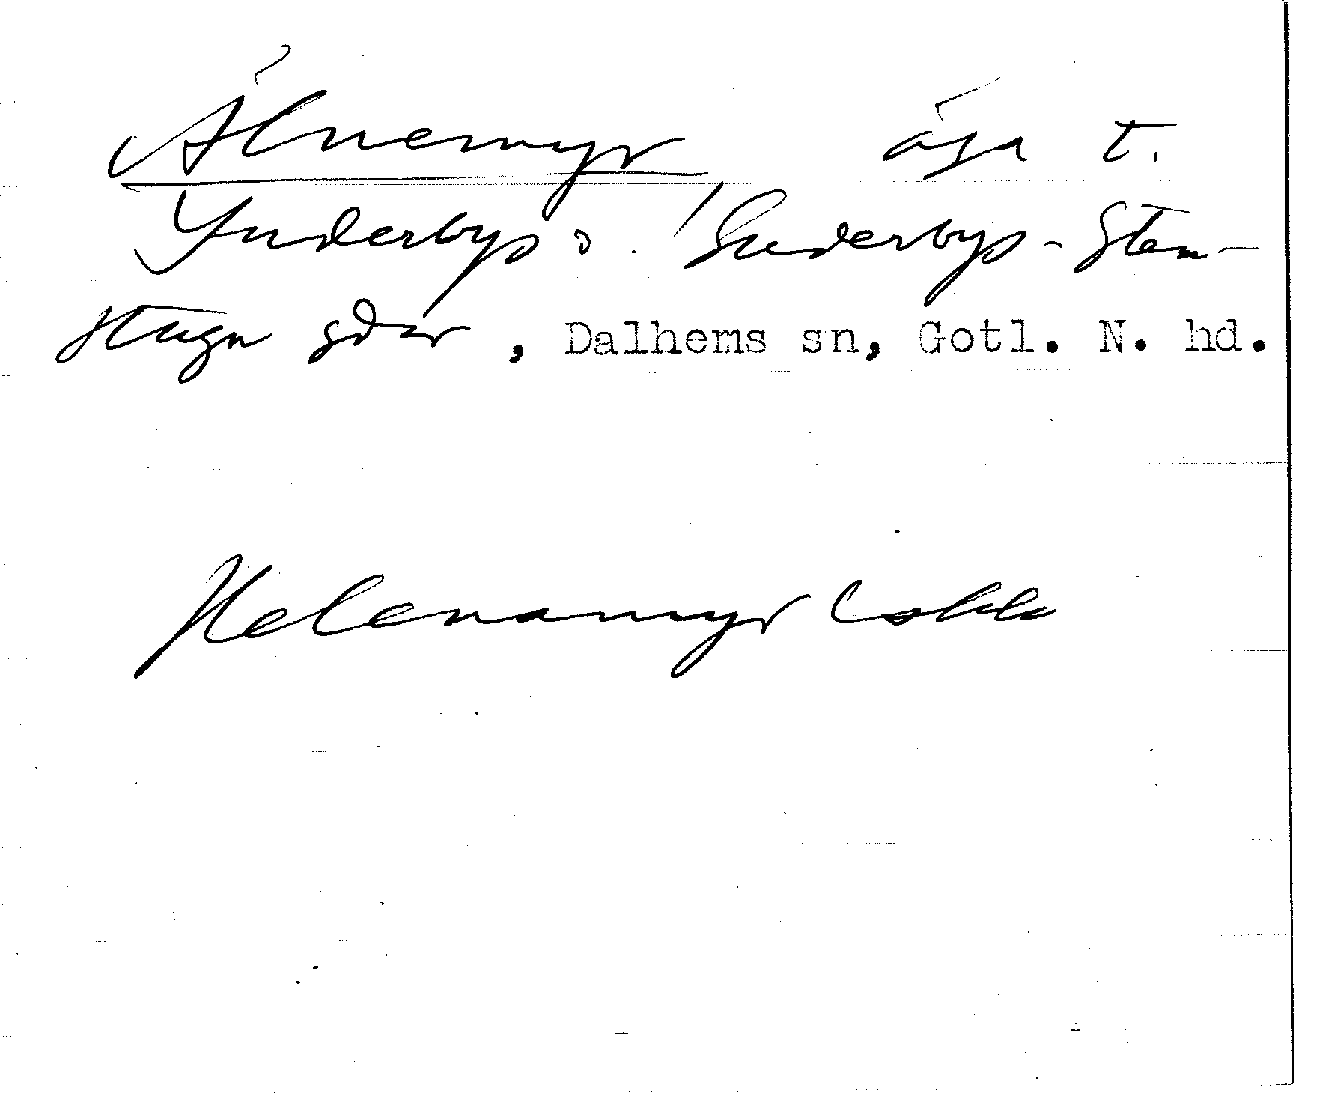 Älnemyr äga t.
Suderbys o. Suderbys-Sten-
stugu gdar, Dalhems sn, Gotl. N. hd.
Helenamyr